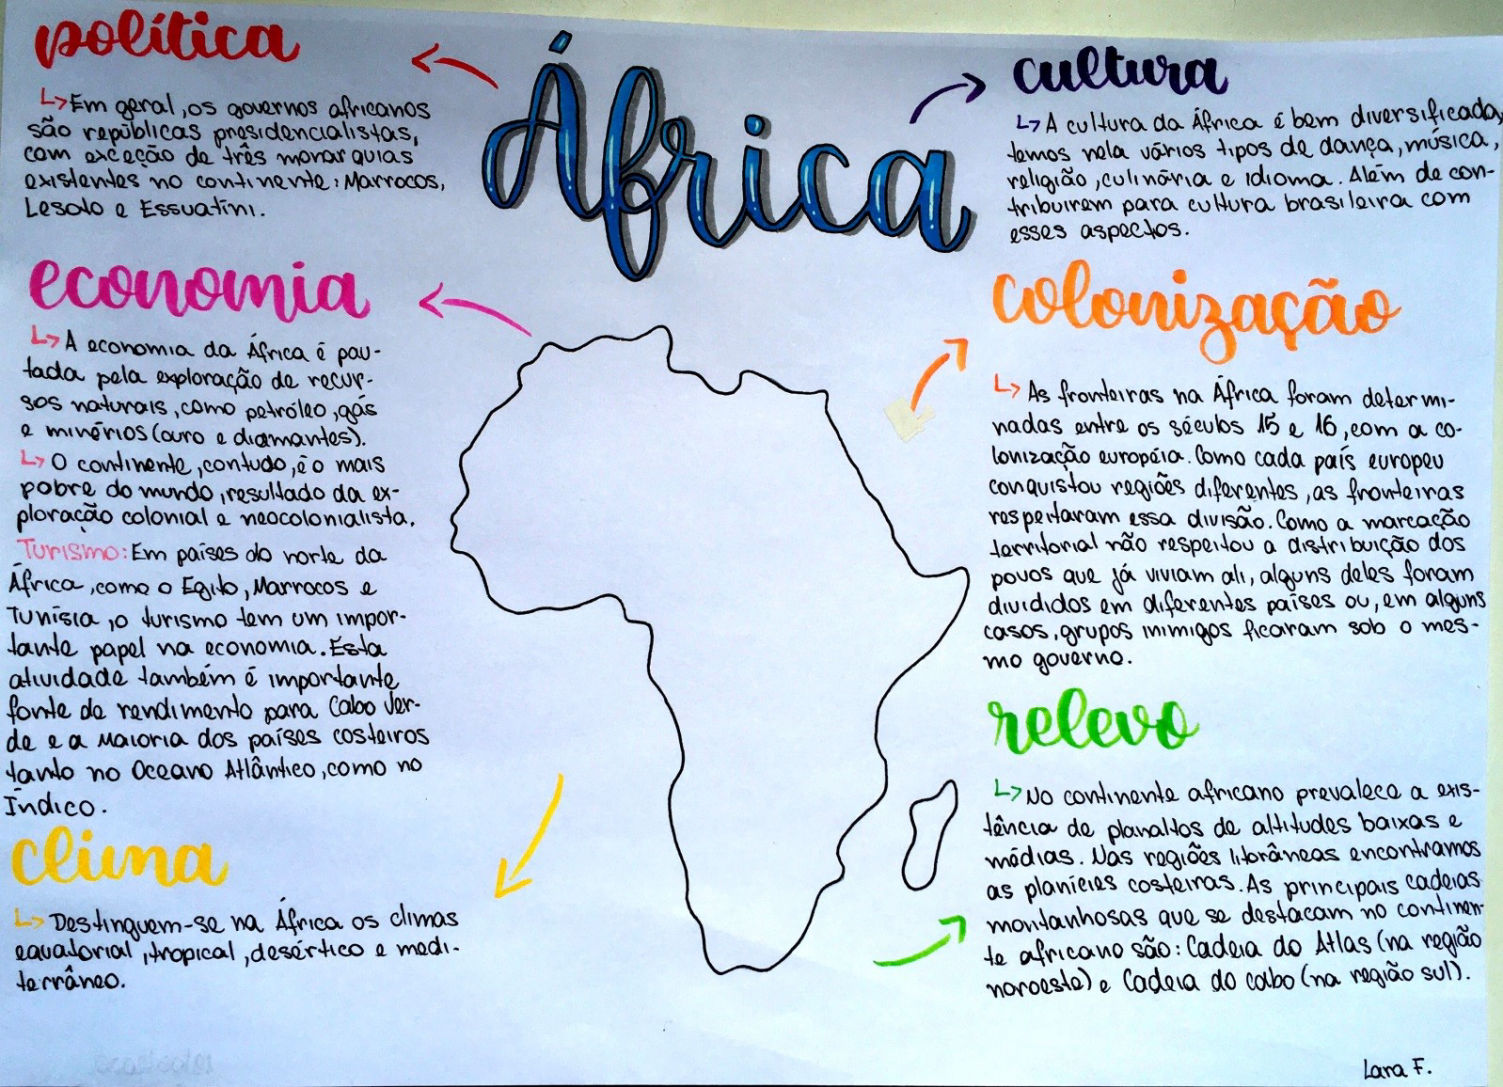 África
política
↳Em geral, os governos africanos
são repúblicas presidencialistas,
com exceção de três monarquias
existentes no continente: Marrocos,
Lesoto e Essuatíni.
economia
↳A economia da África é pau-
tada pela exploração de recur-
sos naturais, como petróleo, gás
e minérios (ouro e diamantes).
↳O continente, contudo, é o mais
pobre do mundo, resultado da ex-
ploração colonial e neocolonialista.
Turismo: Em países do norte da
África, como o Egito, Marrocos e
Tunísia, o turismo tem um impor-
tante papel na economia. Esta
atividade também é importante
fonte de rendimento para Cabo Ver-
de e a Maioria dos países costeiros
tanto no Oceano Atlântico, como no
Índico.
clima
↳Destinguem-se na África os climas
equatorial, tropical, desértico e medi-
terrâneo.
cultura
↳A cultura da África é bem diversificada,
temos nela vários tipos de dança, música,
religião, culinária e idioma. Além de con-
tribuirem para cultura brasileira com
esses aspectos.
colonização
↳As fronteiras na África foram determi-
nadas entre os séculos 15 e 16, com a co-
lonização européia. Como cada país europeu
conquistou regiões diferentes, as fronteiras
respeitaram essa divisão. Como a marcação
territorial não respeitou a distribuição dos
povos que já viviam ali, alguns deles foram
divididos em diferentes países ou, em alguns
casos, grupos inimigos ficaram sob o mes-
mo governo.
relevo
↳No continente africano prevalece a exis-
tência de planaltos de altitudes baixas e
médias. Nas regiões litorâneas encontramos
as planícies costeiras. As principais cadeias
montanhosas que se destacam no continen-
te africano são: Cadeia do Atlas (na região
noroeste) e Cadeia do cabo (na região sul).
Lara F.